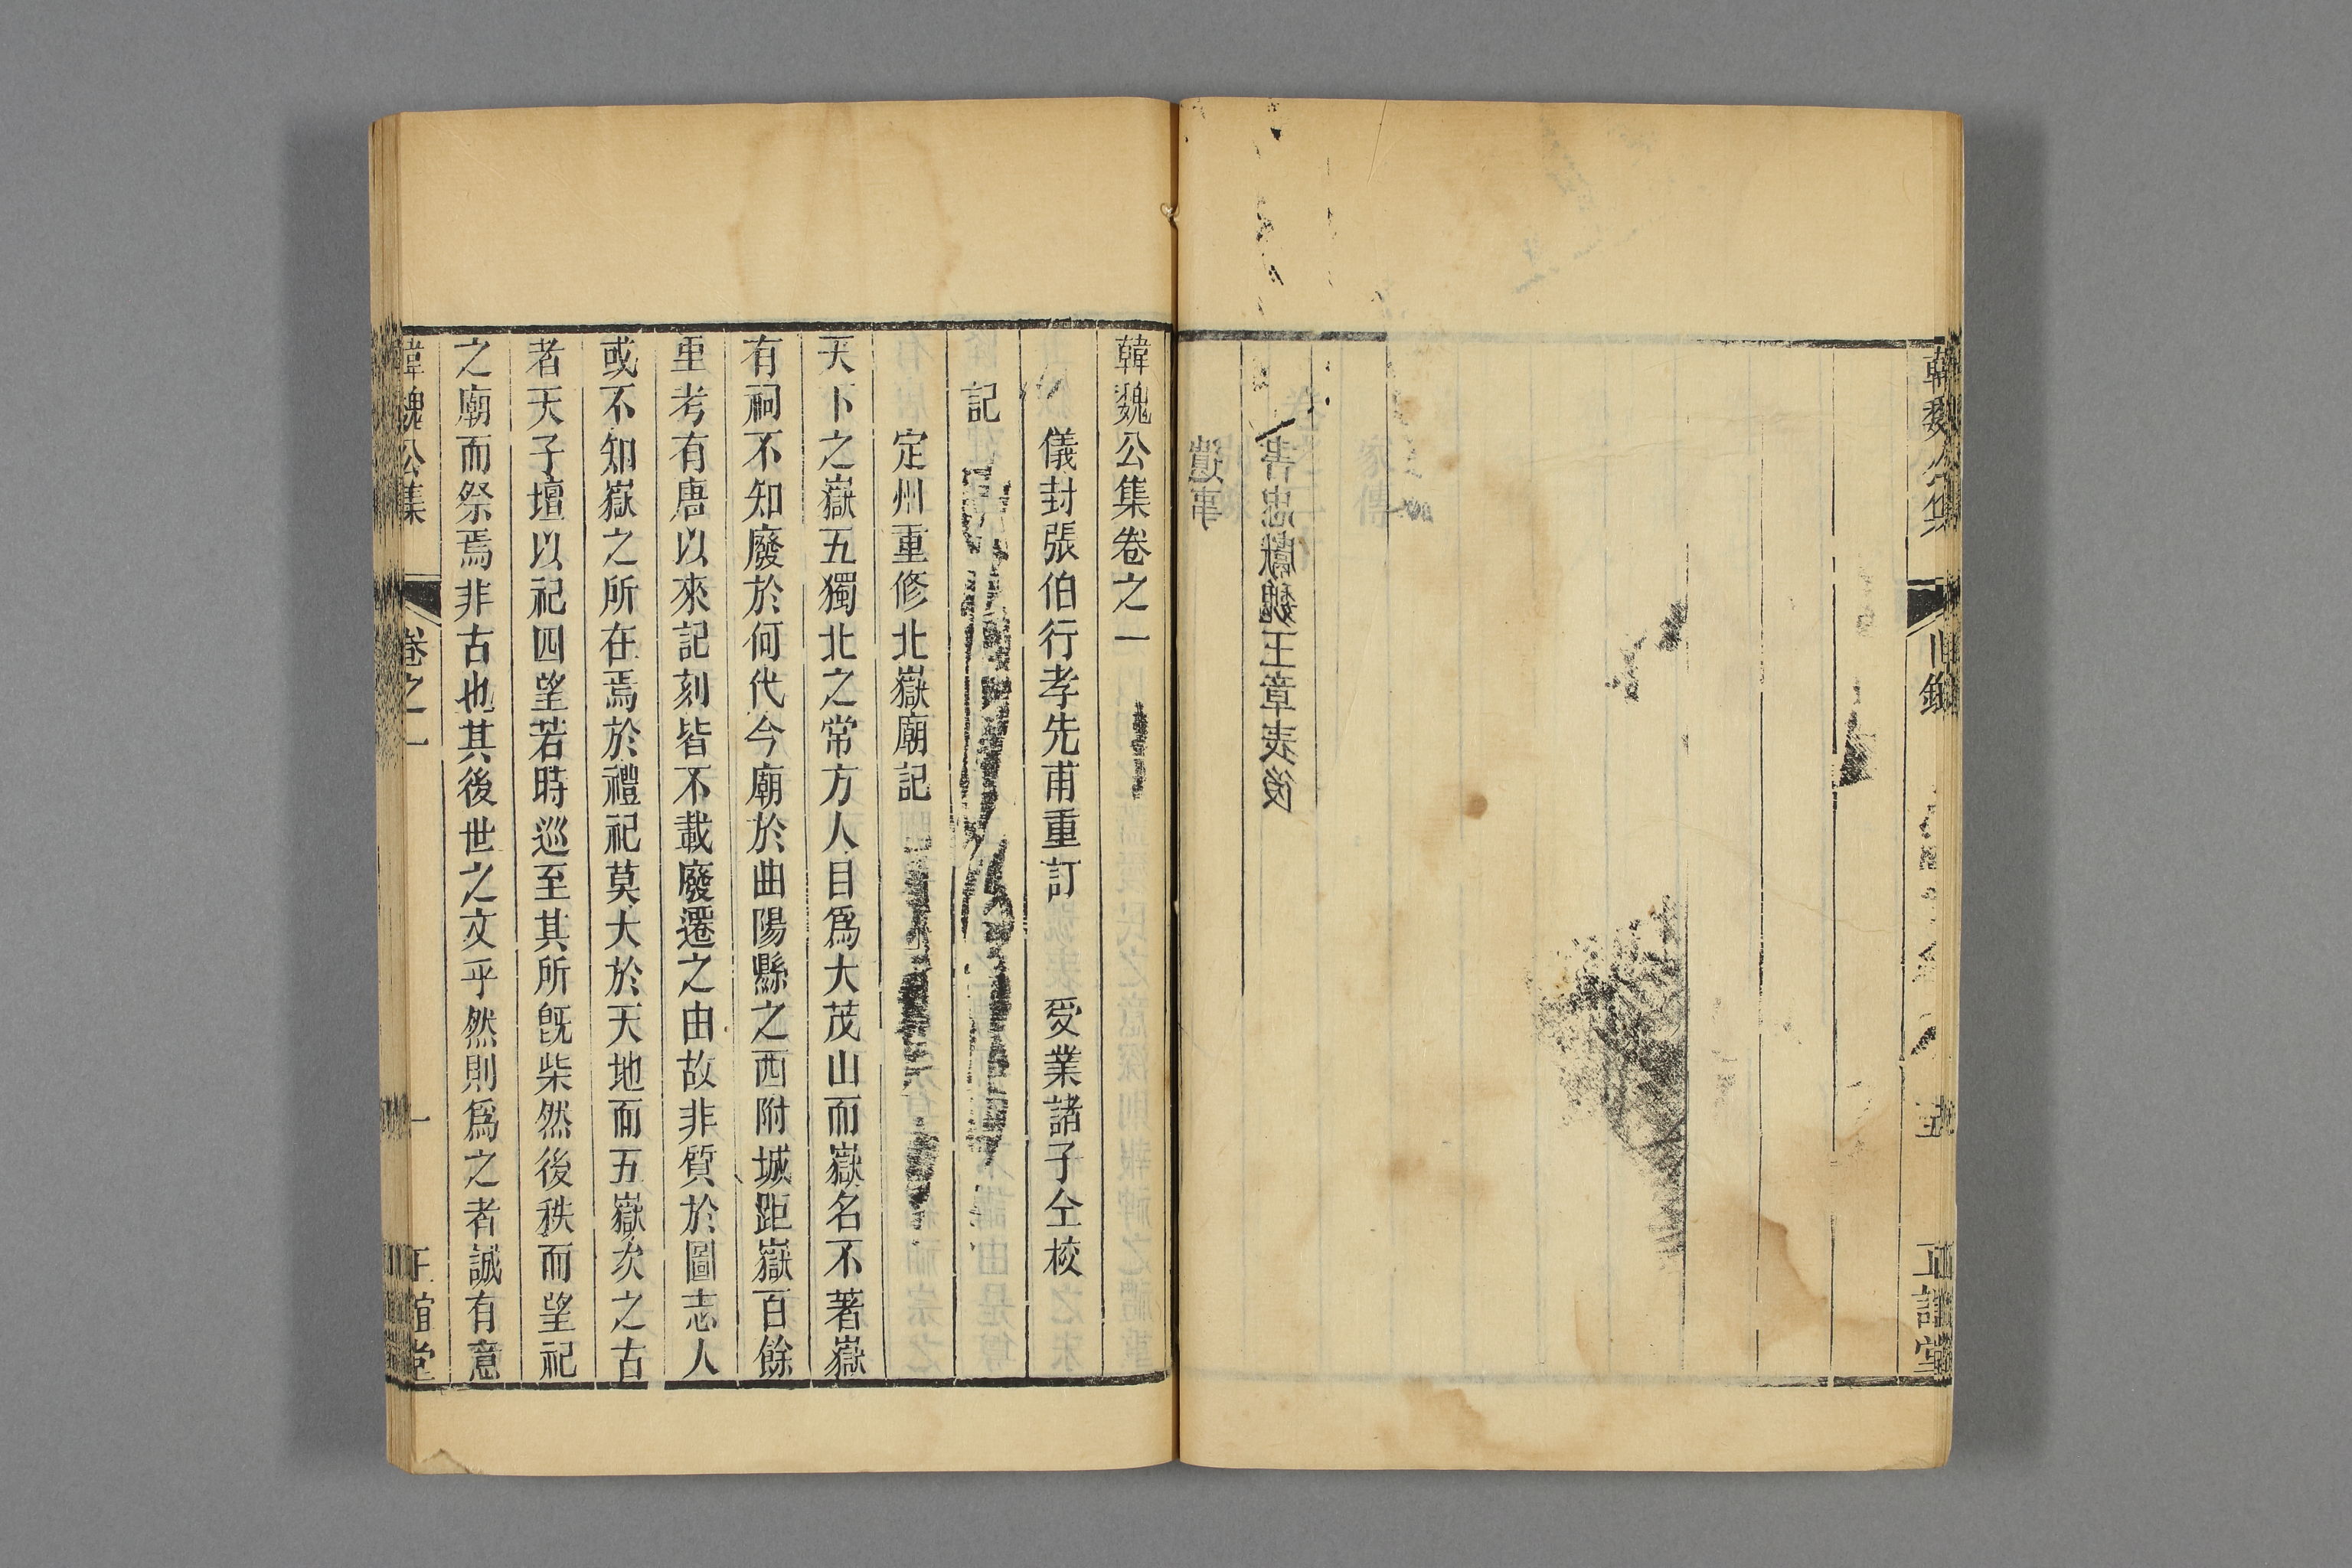 韓魏公集
目錄
五
正誼堂
書忠獻魏王章表後
遺事
韓魏公集卷之一
儀封張伯行孝先甫重訂　受業諸子仝校
記
定州重修北嶽廟記
天下之嶽五獨北之常方人目爲大茂山而嶽名不著嶽
有祠不知廢於何代今廟於曲陽縣之西附城距嶽百餘
重考有唐以來記刻皆不載廢遷之由故非質於圖志人
或不知嶽之所在焉於禮祀莫大於天地而五嶽次之古
者天子壇以祀四望若時巡至其所旣柴然後秩而望祀
之廟而祭焉非古也其後世之文乎然則爲之者誠有意
韓魏公集
卷之一
一
正誼堂